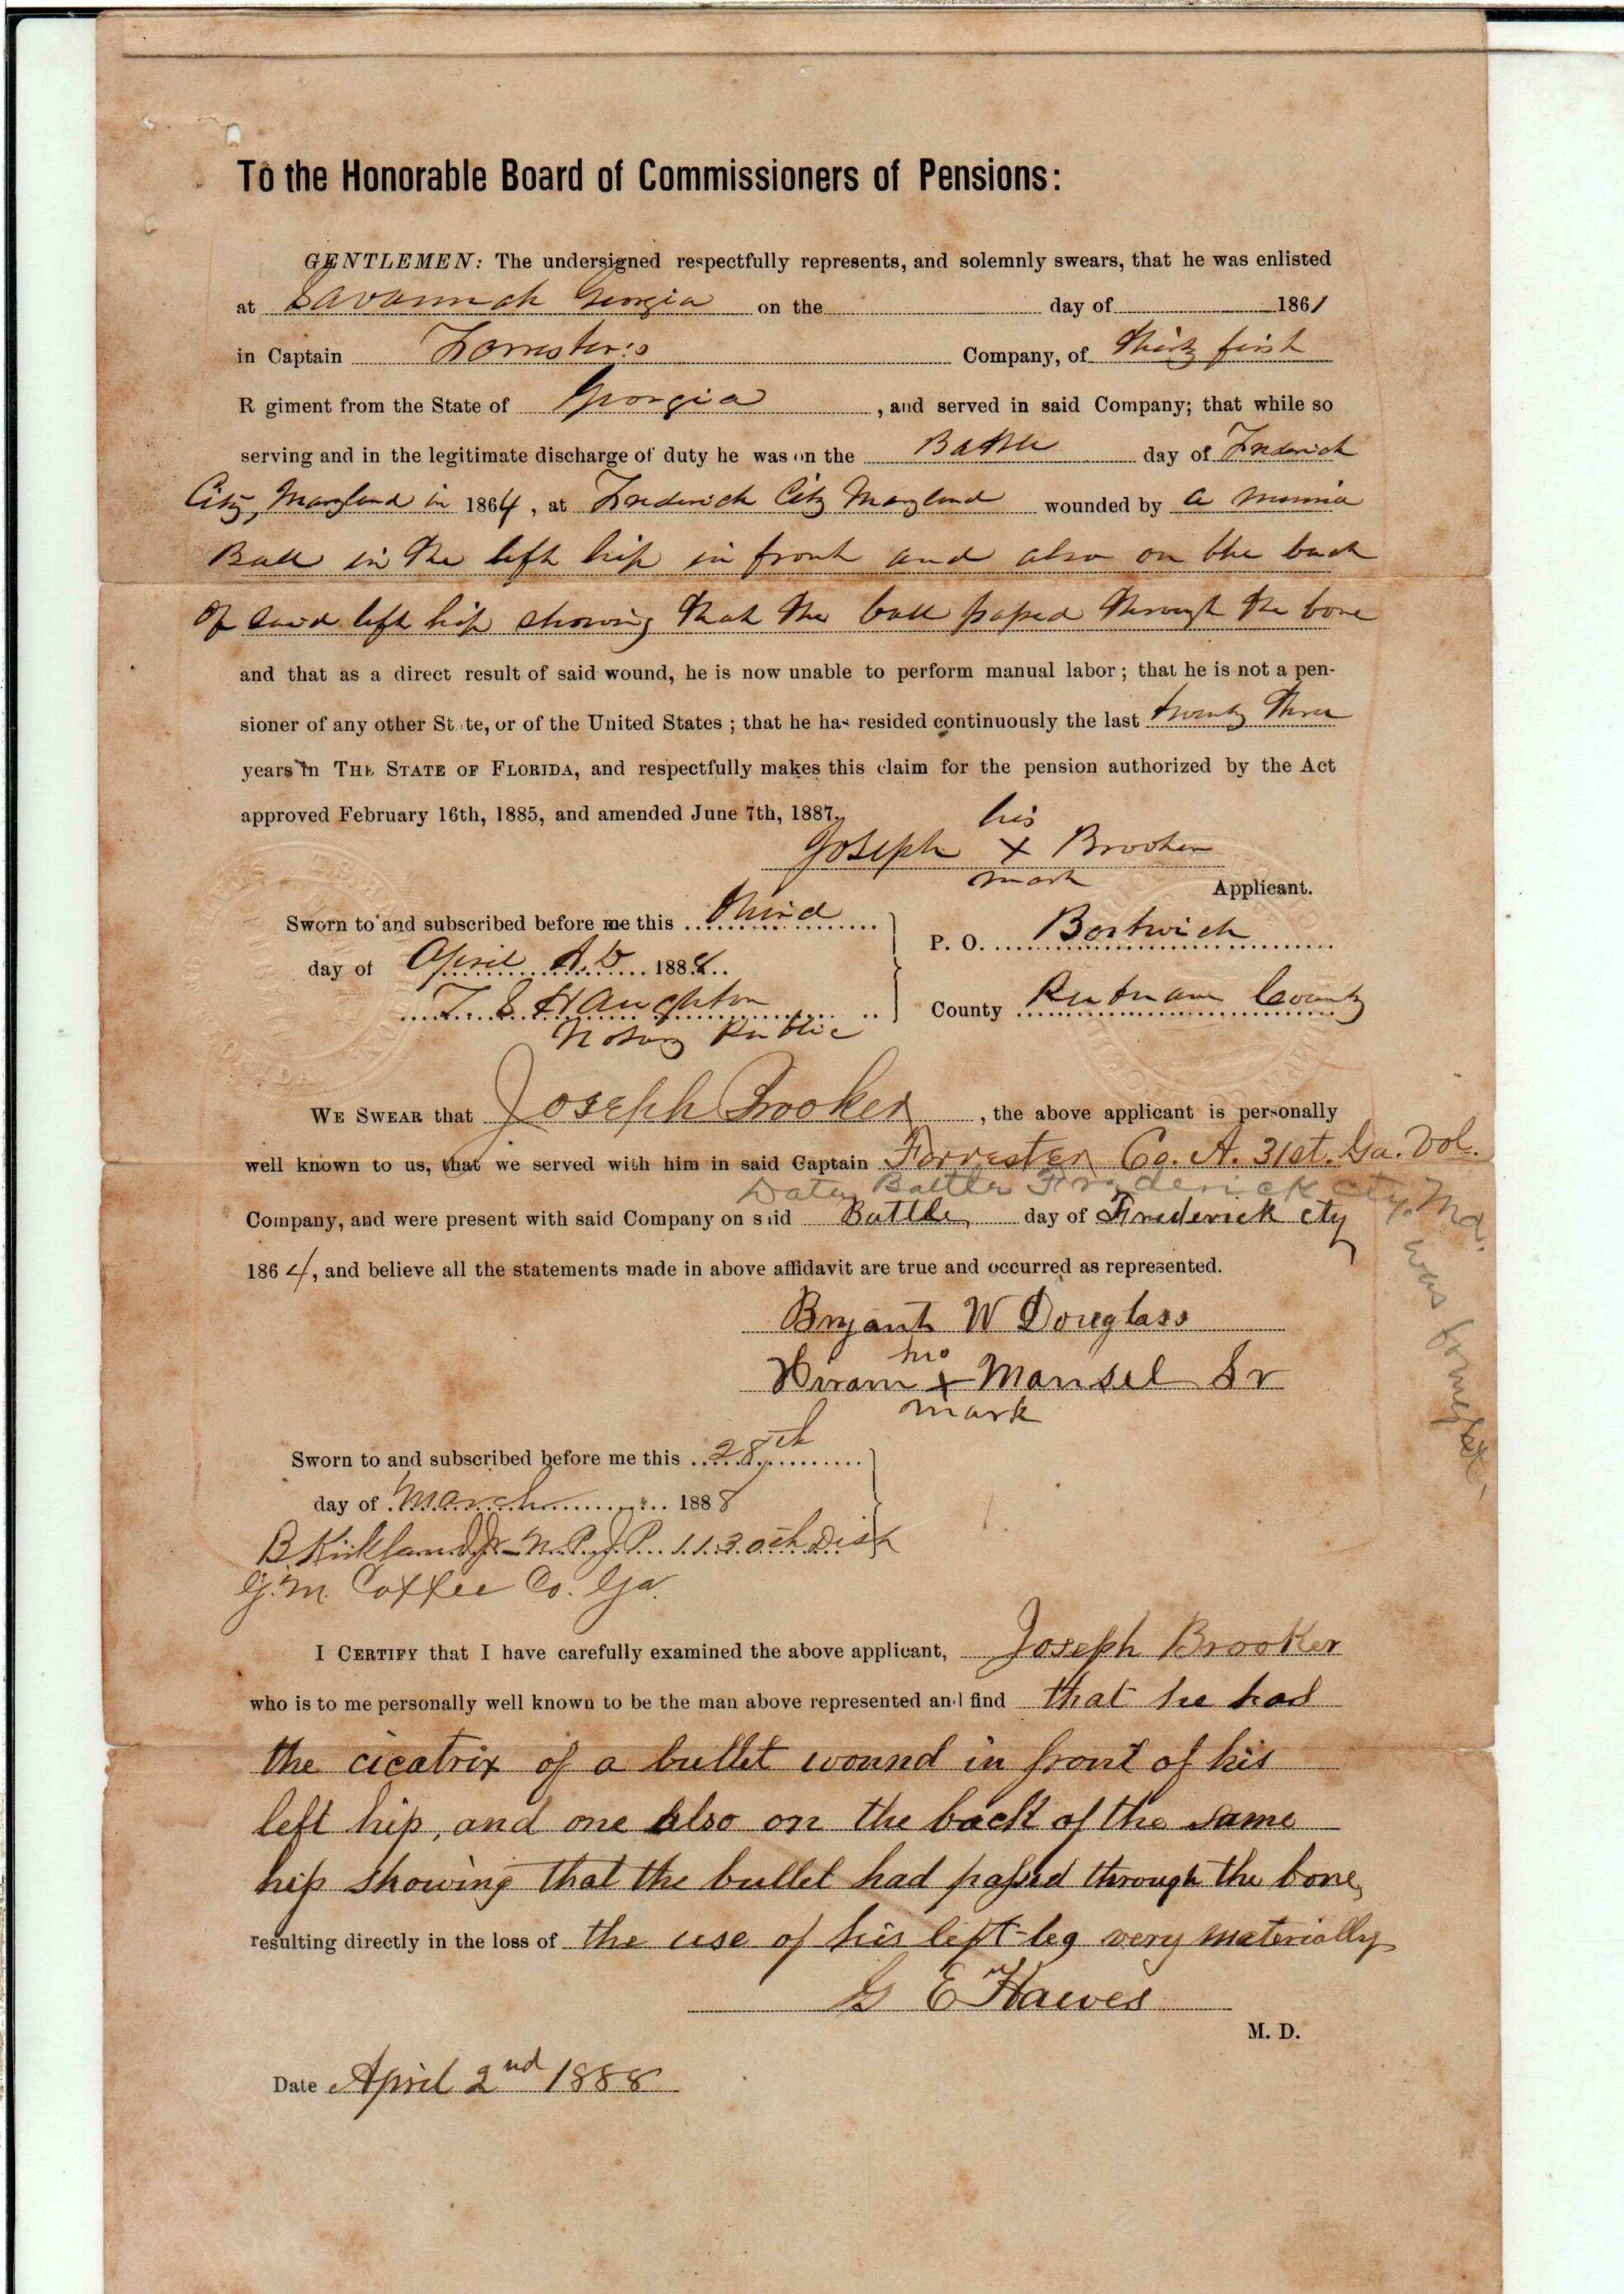 To the Honorable Board of Commissioners of Pensions:
GENTLEMEN: The undersigned respectfully represents, and solemnly swears, that he was enlisted
at Savannah Georgia on the day of 1861
in Captain Forrester's Company, of Thirty first
R giment from the State of Georgia, and served in said Company; that while so
serving and in the legitimate discharge of duty he was on the Battle day of Frederick
City, Maryland in 1864, at Frederick City Maryland wounded by a minnia
Ball in the left hip in front and also on the back
of said left hip showing that the ball passed through the bone
and that as a direct result of said wound, he is now unable to perform manual labor; that he is not a pen-
sioner of any other St te, or of the United States; that he has resided continuously the last twenty three
years in THE STATE OF FLORIDA, and respectfully makes this claim for the pension authorized by the Act
approved February 16th, 1885, and amended June 7th, 1887.
his
Joseph X Brooker
mark
Applicant.
Sworn to and subscribed before me this Third
day of April A.D. 1888
T. S. Haughton
Notary Public
P. O. Bostwick
County Putnam County
WE SWEAR that Joseph Brooker, the above applicant is personally
well known to us, that we served with him in said Captain Forrester Co. A. 31st. Ga. Vol.
Date, Battle Frederick cty. Md.
was fought
Company, and were present with said Company on said Battle, day of Frederick cty
1864, and believe all the statements made in above affidavit are true and occurred as represented.
Bryant W Douglass
his
Hiram X Mansel Sr
mark
Sworn to and subscribed before me this 28th
day of March 1888
B Kirkland Jr N.P. J.P. 1130th Dist
G.M. Coffee Co. Ga.
I CERTIFY that I have carefully examined the above applicant, Joseph Brooker
who is to me personally well known to be the man above represented and find that he has
the cicatrix of a bullet wound in front of his
left hip, and one also on the back of the same
hip showing that the bullet had passed through the bone,
resulting directly in the loss of the use of his left leg very materially
G E Hawes
M. D.
Date April 2nd 1888